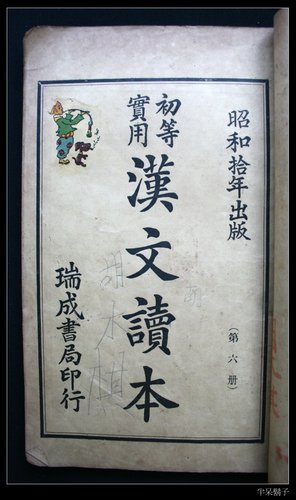 昭和拾年出版
(第六册)
初等
實用
漢文讀本
瑞成書局印行
胡木